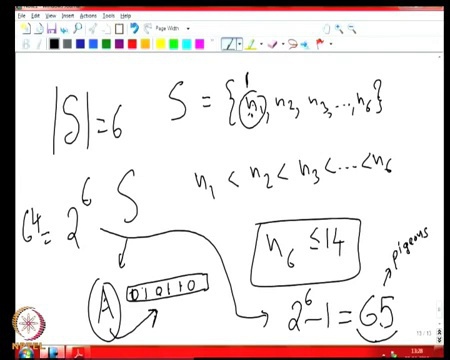 File Edit View Insert Actions Tools Help
Page Width
|S| = 6
S = {n₁, n₂, n₃, ..., n₆}
1
n₁ < n₂ < n₃ < ... < n₆
64 = 2⁶ S
n₆ ≤ 14
pigeons
A
010110
2⁶ - 1 = 65